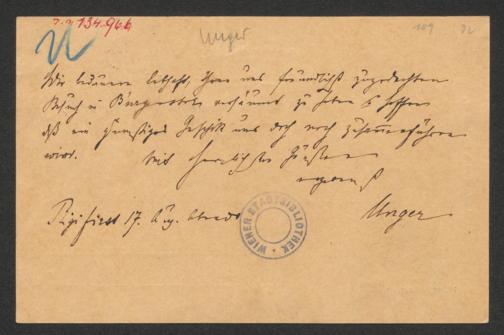 I.N. 134.966
Unger
169
Wir bedauern lebhaft, Ihren uns freundlichst zugedachten
Besuch in Bürgenstock versäumt zu haben & hoffen
daß ein günstiges Geschick uns doch noch zusammenführen
wird. Mit herzlichsten Grüßen
ergebenst
Rigi First 17. Aug. Abends
Unger
WIENER STADTBIBLIOTHEK